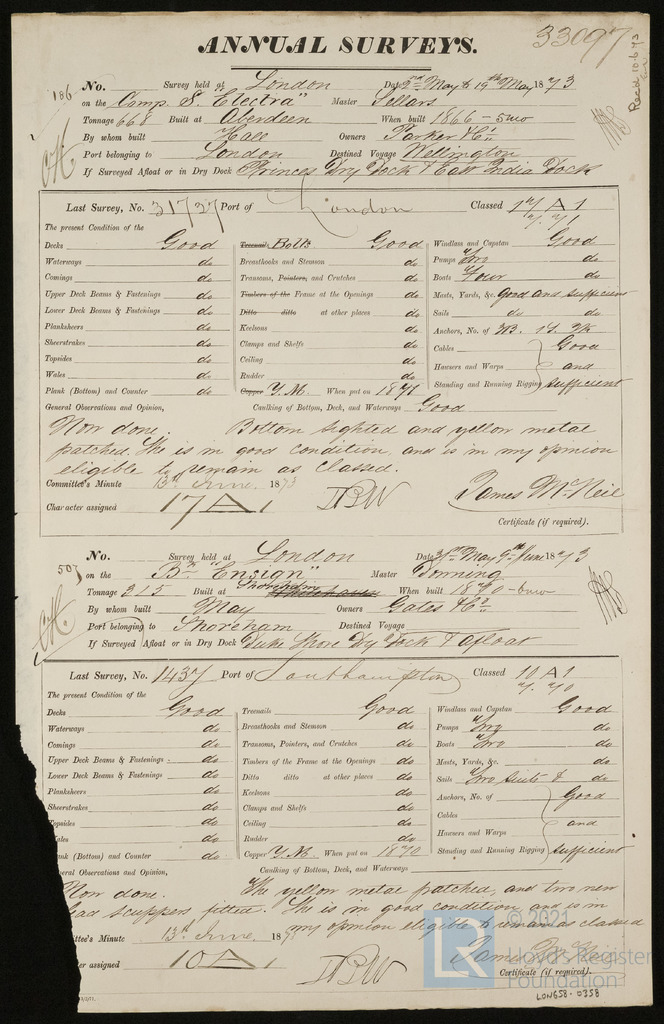 33097
Recd 10.6.73
ANNUAL SURVEYS.
186 No. Survey held at London Date 2nd May to 19th May 1873
on the Comp. S. "Electra" Master Sellars
Tonnage 668 Built at Aberdeen When built 1866 - 5mo
By whom built Hall Owners Parker & Co
Port belonging to London Destined Voyage Wellington
If Surveyed Afloat or in Dry Dock Princes Dry Dock & East India Dock
Last Survey, No. 31737 Port of London Classed 17 A 1
The present Condition of the
Decks Good Treenail Bolts Good Windlass and Capstan Good
Waterways do Breasthooks and Stemson do Pumps Two do
Comings do Transoms, Pointers, and Crutches do Boats Four do
Upper Deck Beams & Fastenings do Timbers of the Frame at the Openings do Masts, Yards, &c. Good and sufficient
Lower Deck Beams & Fastenings do Ditto ditto at other places do Sails do do
Planksheers do Keelsons do Anchors, No. of 3B. 1S. 2K
Sheerstrakes do Clamps and Shelfs do Cables Good
Topsides do Ceiling do Hawsers and Warps and
Wales do Rudder do Standing and Running Rigging sufficient
Plank (Bottom) and Counter do Copper Y.M. When put on 1871
General Observations and Opinion, Caulking of Bottom, Deck, and Waterways Good
Now done. Bottom sighted and yellow metal
patched. She is in good condition and is in my opinion
eligible to remain as classed.
Committee's Minute 13th June, 1873
Character assigned 17 A 1 James McNeil
Certificate (if required).
507 No. Survey held at London Date 31st May 9th June 1873
on the Bk "Ensign" Master Dorning
Tonnage 315 Built at Shoreham When built 1870 - 6mo
By whom built May Owners Gates & Co
Port belonging to Shoreham Destined Voyage
If Surveyed Afloat or in Dry Dock Duke Shore Dry Dock & afloat
Last Survey, No. 1437 Port of Southampton Classed 10 A 1
The present Condition of the
Decks Good Treenails Good Windlass and Capstan Good
Waterways do Breasthooks and Stemson do Pumps Two do
Comings do Transoms, Pointers, and Crutches do Boats Two do
Upper Deck Beams & Fastenings do Timbers of the Frame at the Openings do Masts, Yards, &c. do
Lower Deck Beams & Fastenings do Ditto ditto at other places do Sails Two suits & do
Planksheers do Keelsons do Anchors, No. of Good
Sheerstrakes do Clamps and Shelfs do Cables
opsides do Ceiling do Hawsers and Warps and
ales do Rudder do Standing and Running Rigging sufficient
nk (Bottom) and Counter do Copper Y.M. When put on 1870
eral Observations and Opinion, Caulking of Bottom, Deck, and Waterways
Now done. The yellow metal patched, and two new
ead scuppers fitted. She is in good condition and is in
my opinion eligible to remain as classed
ttee's Minute 13th June, 187
er assigned 10 A 1 James McNeil
Certificate (if required).
LR © 2021
Lloyd's Register
Foundation
LON658-0358